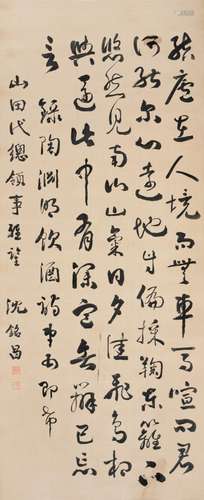 結廬在人境而無車馬喧問君
何能尔心遠地自偏採鞠東籬下
悠然見南山山氣日夕佳飛鳥相
與還此中有深意欲辯已忘
言 錄陶淵明飲酒詩書即希
山田代總領事雅 沈銘昌